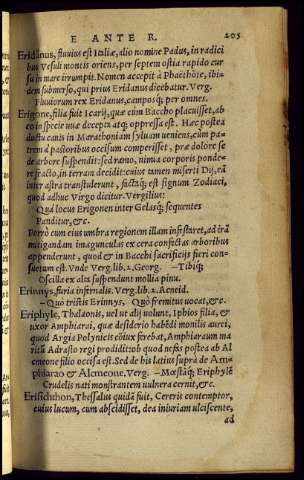 E ANTE R. 205
Eridanus, fluuius est Italiæ, alio nomine Padus, in radici
bus Vesuli montis oriens, per septem ostia rapido cur
su in mare irrumpit. Nomen accepit à Phaethõte, ibi-
dem submerso, qui prius Eridanus dicebatur. Verg.
Fluuiorum rex Eridanus, camposq; per omnes.
Erigone, filia fuit Icarij, quæ cum Baccho placuisset, ab
eo in specie uuæ decepta atq; oppressa est. Hæc postea
ductu canis in Marathoniam syluam ueniens, cum pa-
trem à pastoribus occisum comperisset, præ dolore se
de arbore suspendit: sed ramo, nimia corporis ponde-
re fracto, in terram decidit: cuius tamen miserti Dij, eã
inter astra transtulerunt, factaq; est signum Zodiaci,
quod adhuc Virgo dicitur. Vergilius:
Quà locus Erigonen inter Gelasq; sequentes
Panditur, &c.
Porrò cum eius umbra regionem illam infestaret, ad irã
mitigandam imagunculas ex cera confectas arboribus
appenderunt, quod & in Bacchi sacrificijs fieri con-
suetum est. Vnde Verg. lib. 2. Georg. —Tibiq;
Oscilla ex alta suspendunt mollia pinu.
Erinnys, furia infernalis. Verg. lib. 2. Aeneid.
—Quò tristis Erinnys, Quò fremitus uocat, &c.
Eriphyle, Thalaonis, uel ut alij uolunt, Iphios filia, &
uxor Amphiarai, quæ desiderio habẽdi monilis aurei,
quod Argia Polynicis cõiux ferebat, Amphiaraum ma
ritũ Adrasto regi prodidit: ob quod nefas postea ab Al
cmeone filio occisa est. Sed de his latius suprà de Am-
phiarao & Alcmeone. Verg. —Mœstãq; Eriphylẽ
Crudelis nati monstrantem uulnera cernit, &c.
Erisichthon, Thessalus quidã fuit, Cereris contemptor,
cuius lucum, cum abscidisset, dea iniuriam ulciscente,
ad